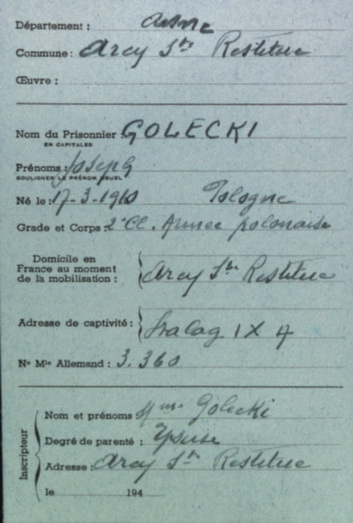 Département : Aisne
Commune : Arcy Ste Restitue
Œuvre :
Nom du Prisonnier GOLECKI
EN CAPITALES
Prénoms Joseph
SOULIGNER LE PRÉNOM USUEL
Né le : 17-3-1910 Pologne
Grade et Corps 2e Cl. Armée polonaise
Domicile en
France au moment
de la mobilisation : Arcy Ste Restitue
Adresse de captivité : Stalag IX
No Mle Allemand : 3.360
Inscripteur
Nom et prénoms Mme Golecki
Degré de parenté : Epouse
Adresse Arcy Ste Restitue
le 194